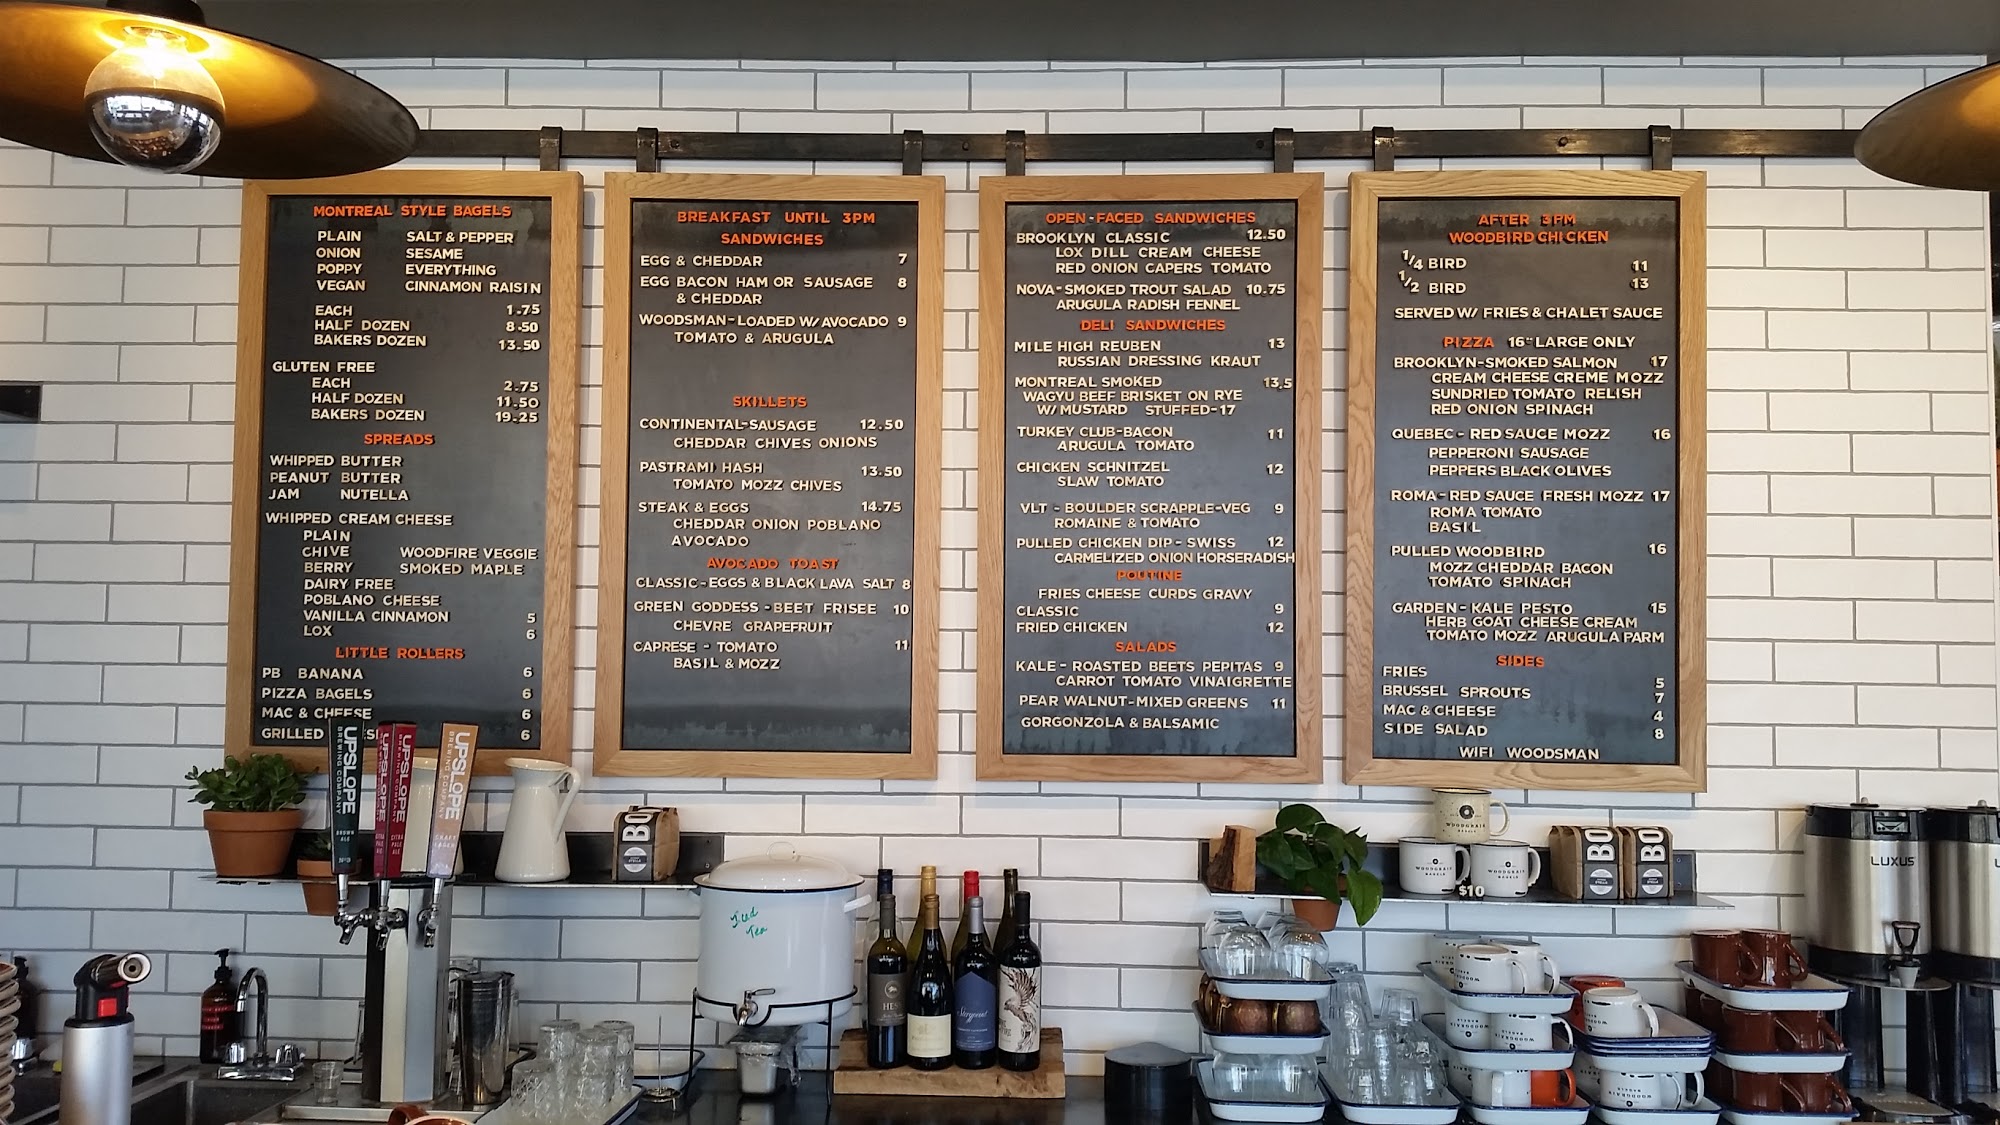 MONTREAL STYLE BAGELS
PLAIN SALT & PEPPER
ONION SESAME
POPPY EVERYTHING
VEGAN CINNAMON RAISIN
EACH 1.75
HALF DOZEN 8.50
BAKERS DOZEN 13.50
GLUTEN FREE
EACH 2.75
HALF DOZEN 11.50
BAKERS DOZEN 19.25
SPREADS
WHIPPED BUTTER
PEANUT BUTTER
JAM NUTELLA
WHIPPED CREAM CHEESE
PLAIN
CHIVE WOODFIRE VEGGIE
BERRY SMOKED MAPLE
DAIRY FREE
POBLANO CHEESE
VANILLA CINNAMON 5
LOX 6
LITTLE ROLLERS
PB BANANA 6
PIZZA BAGELS 6
MAC & CHEESE 6
GRILLED 6
BREAKFAST UNTIL 3PM
SANDWICHES
EGG & CHEDDAR 7
EGG BACON HAM OR SAUSAGE 8
& CHEDDAR
WOODSMAN-LOADED W/AVOCADO 9
TOMATO & ARUGULA
SKILLETS
CONTINENTAL-SAUSAGE 12.50
CHEDDAR CHIVES ONIONS
PASTRAMI HASH 13.50
TOMATO MOZZ CHIVES
STEAK & EGGS 14.75
CHEDDAR ONION POBLANO
AVOCADO
AVOCADO TOAST
CLASSIC-EGGS & BLACK LAVA SALT 8
GREEN GODDESS-BEET FRISEE 10
CHEVRE GRAPEFRUIT
CAPRESE - TOMATO 11
BASIL & MOZZ
OPEN-FACED SANDWICHES
BROOKLYN CLASSIC 12.50
LOX DILL CREAM CHEESE
RED ONION CAPERS TOMATO
NOVA-SMOKED TROUT SALAD 10.75
ARUGULA RADISH FENNEL
DELI SANDWICHES
MILE HIGH REUBEN 13
RUSSIAN DRESSING KRAUT
MONTREAL SMOKED 13.5
WAGYU BEEF BRISKET ON RYE
W/MUSTARD STUFFED-17
TURKEY CLUB-BACON 11
ARUGULA TOMATO
CHICKEN SCHNITZEL 12
SLAW TOMATO
VLT - BOULDER SCRAPPLE-VEG 9
ROMAINE & TOMATO
PULLED CHICKEN DIP-SWISS 12
CARMELIZED ONION HORSERADISH
POUTINE
FRIES CHEESE CURDS GRAVY
CLASSIC 9
FRIED CHICKEN 12
SALADS
KALE-ROASTED BEETS PEPITAS 9
CARROT TOMATO VINAIGRETTE
PEAR WALNUT-MIXED GREENS 11
GORGONZOLA & BALSAMIC
AFTER 3PM
WOODBIRD CHICKEN
1/4 BIRD 11
1/2 BIRD 13
SERVED W/ FRIES & CHALET SAUCE
PIZZA 16" LARGE ONLY
BROOKLYN-SMOKED SALMON 17
CREAM CHEESE CREME MOZZ
SUNDRIED TOMATO RELISH
RED ONION SPINACH
QUEBEC - RED SAUCE MOZZ 16
PEPPERONI SAUSAGE
PEPPERS BLACK OLIVES
ROMA-RED SAUCE FRESH MOZZ 17
ROMA TOMATO
BASIL
PULLED WOODBIRD 16
MOZZ CHEDDAR BACON
TOMATO SPINACH
GARDEN-KALE PESTO 15
HERB GOAT CHEESE CREAM
TOMATO MOZZ ARUGULA PARM
SIDES
FRIES 5
BRUSSEL SPROUTS 7
MAC & CHEESE 4
SIDE SALAD 8
WIFI WOODSMAN
UPSLOPE
BREWING COMPANY
BROWN ALE
UPSLOPE
BREWING COMPANY
UPSLOPE
BREWING COMPANY
CITRA PALE ALE
UPSLOPE
BREWING COMPANY
CRAFT LAGER
BO
Iced
Tea
Sargent
WOODGRAIN
BAGELS
WOODGRAIN
BAGELS
WOODGRAIN
BAGELS
$10
BO
BO
LUXUS